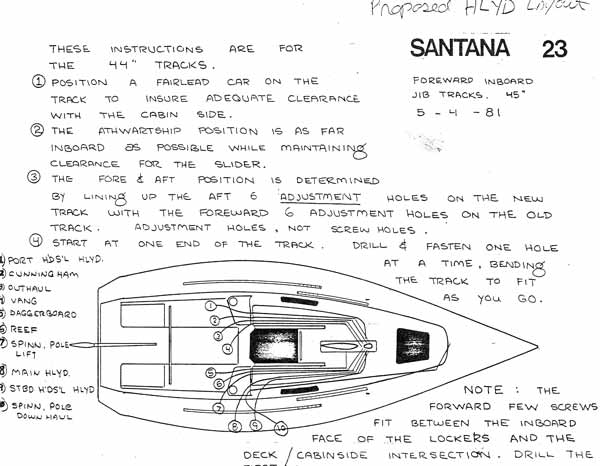 Proposed HLYD Layout
SANTANA 23
FOREWARD INBOARD
JIB TRACKS. 45"
5 - 4 - 81
THESE INSTRUCTIONS ARE FOR
THE 44" TRACKS.
① POSITION A FAIRLEAD CAR ON THE
TRACK TO INSURE ADEQUATE CLEARANCE
WITH THE CABIN SIDE.
② THE ATHWARTSHIP POSITION IS AS FAR
INBOARD AS POSSIBLE WHILE MAINTAINING
CLEARANCE FOR THE SLIDER.
③ THE FORE & AFT POSITION IS DETERMINED
BY LINING UP THE AFT 6 ADJUSTMENT HOLES ON THE NEW
TRACK WITH THE FOREWARD 6 ADJUSTMENT HOLES ON THE OLD
TRACK. ADJUSTMENT HOLES, NOT SCREW HOLES.
④ START AT ONE END OF THE TRACK. DRILL & FASTEN ONE HOLE
AT A TIME, BENDING
THE TRACK TO FIT
AS YOU GO.
1) PORT H'DS'L HLYD.
2) CUNNINGHAM
3) OUTHAUL
4) VANG
5) DAGGERBOARD
6) REEF
7) SPINN. POLE
LIFT
8) MAIN HLYD.
9) STBD H'DS'L HLYD
10) SPINN. POLE
DOWN HAUL
1
2
3
4
5
6
7
8
9
10
NOTE : THE
FORWARD FEW SCREWS
FIT BETWEEN THE INBOARD
FACE OF THE LOCKERS AND THE
DECK / CABINSIDE INTERSECTION. DRILL THE